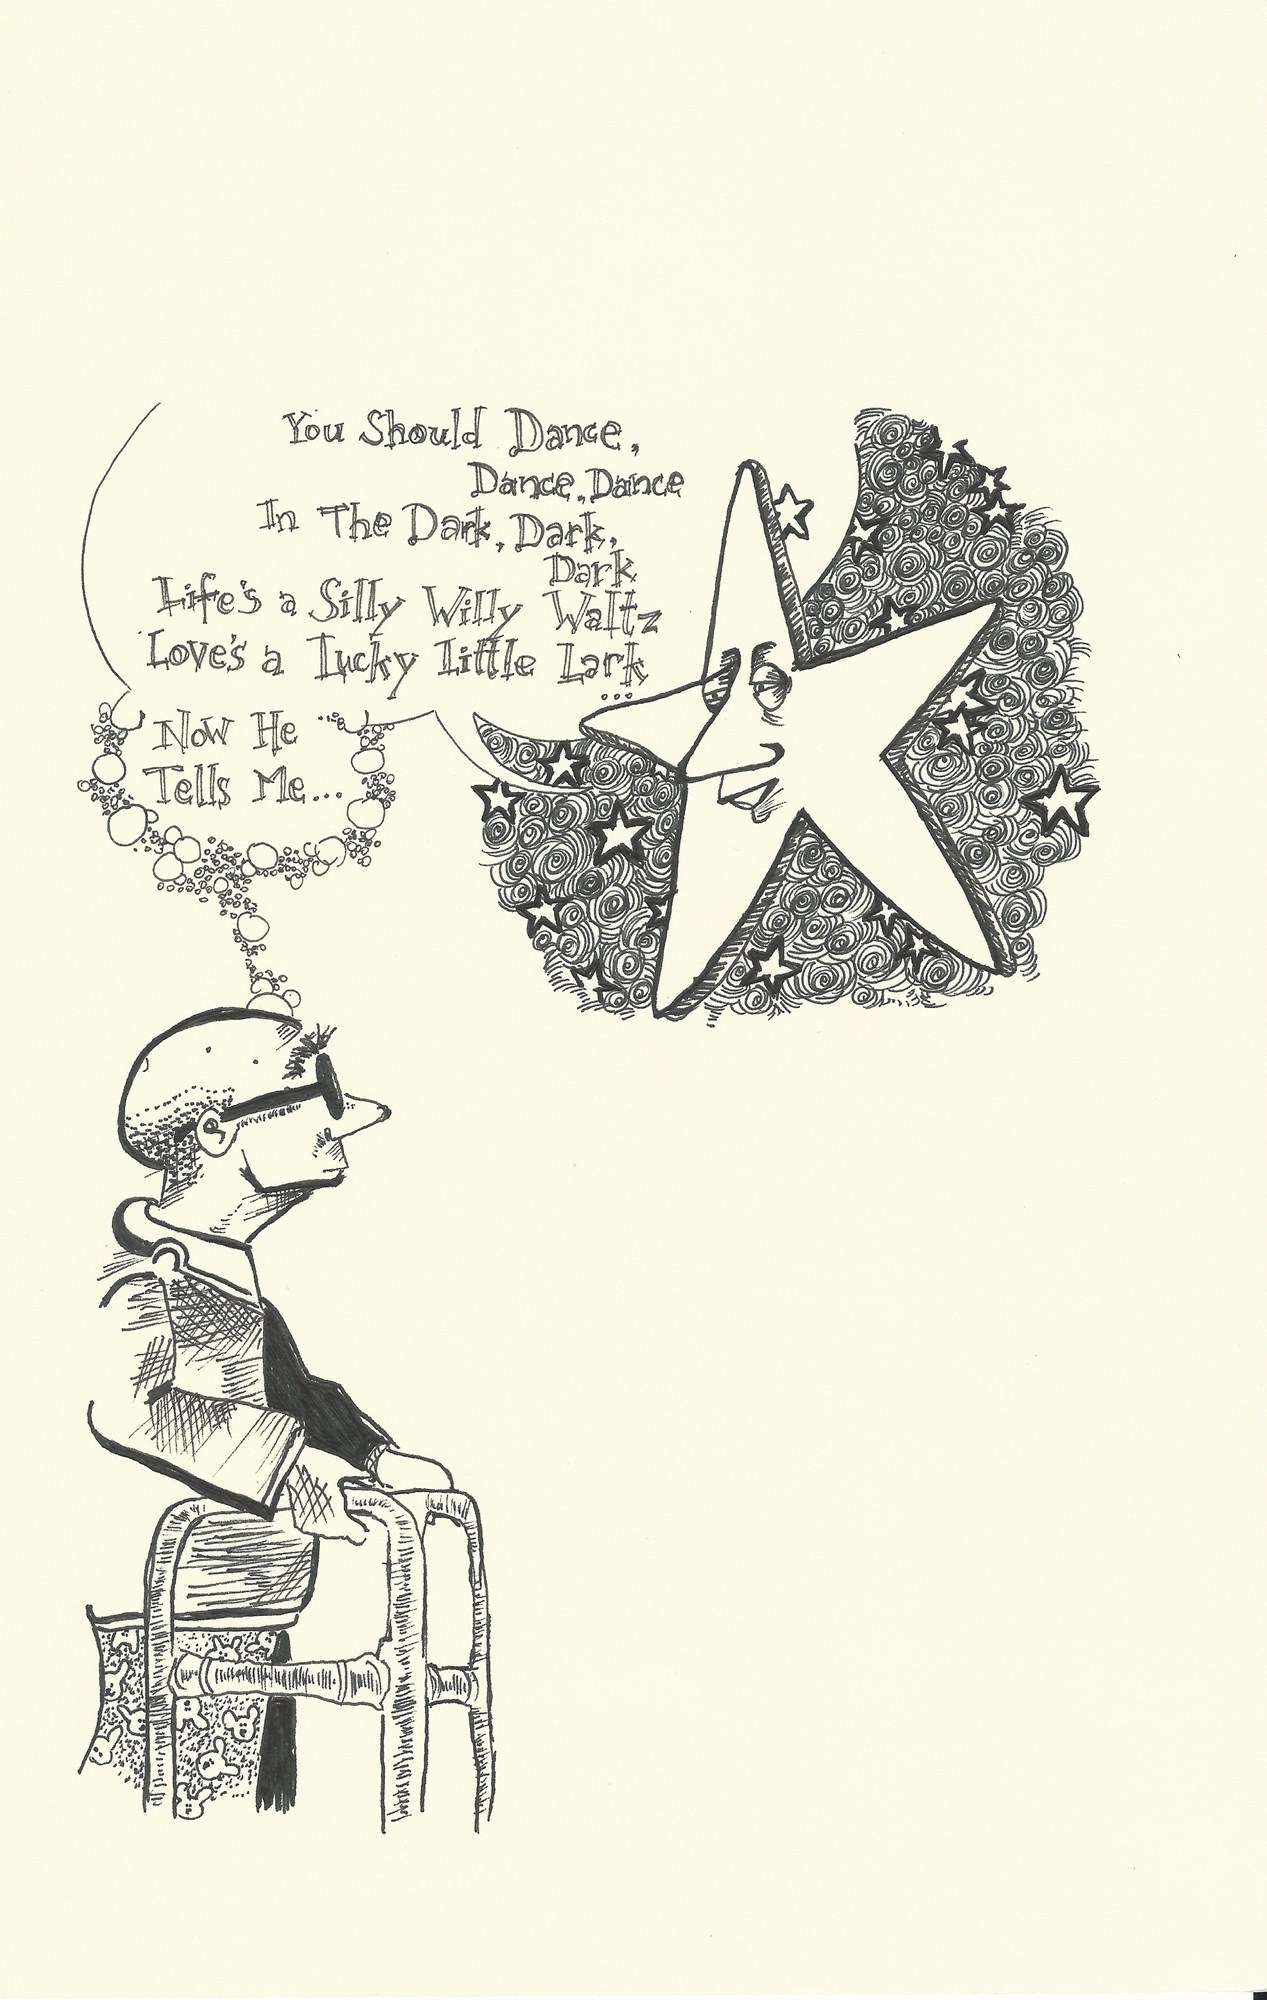 You Should Dance,
Dance, Dance
In The Dark, Dark,
Dark
Life's a Silly Willy Waltz
Love's a Lucky Little Lark
...
Now He
Tells Me...